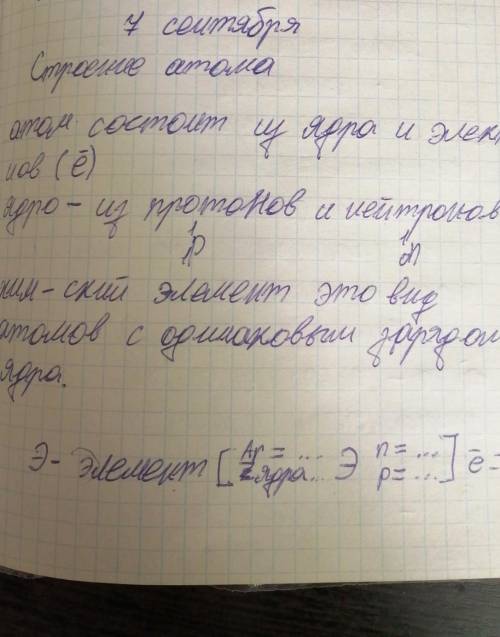 7 сентября
Строение атома
атом состоит из ядра и элект
нов (ē)
ядро - из протонов и нейтронов
¹₁p ¹₀n
хим-ский элемент это вид
атомов с одинаковым зарядом
ядра.
Э - элемент [ Ar = ... Э n = ... ] ē =
Z ядра... p = ...